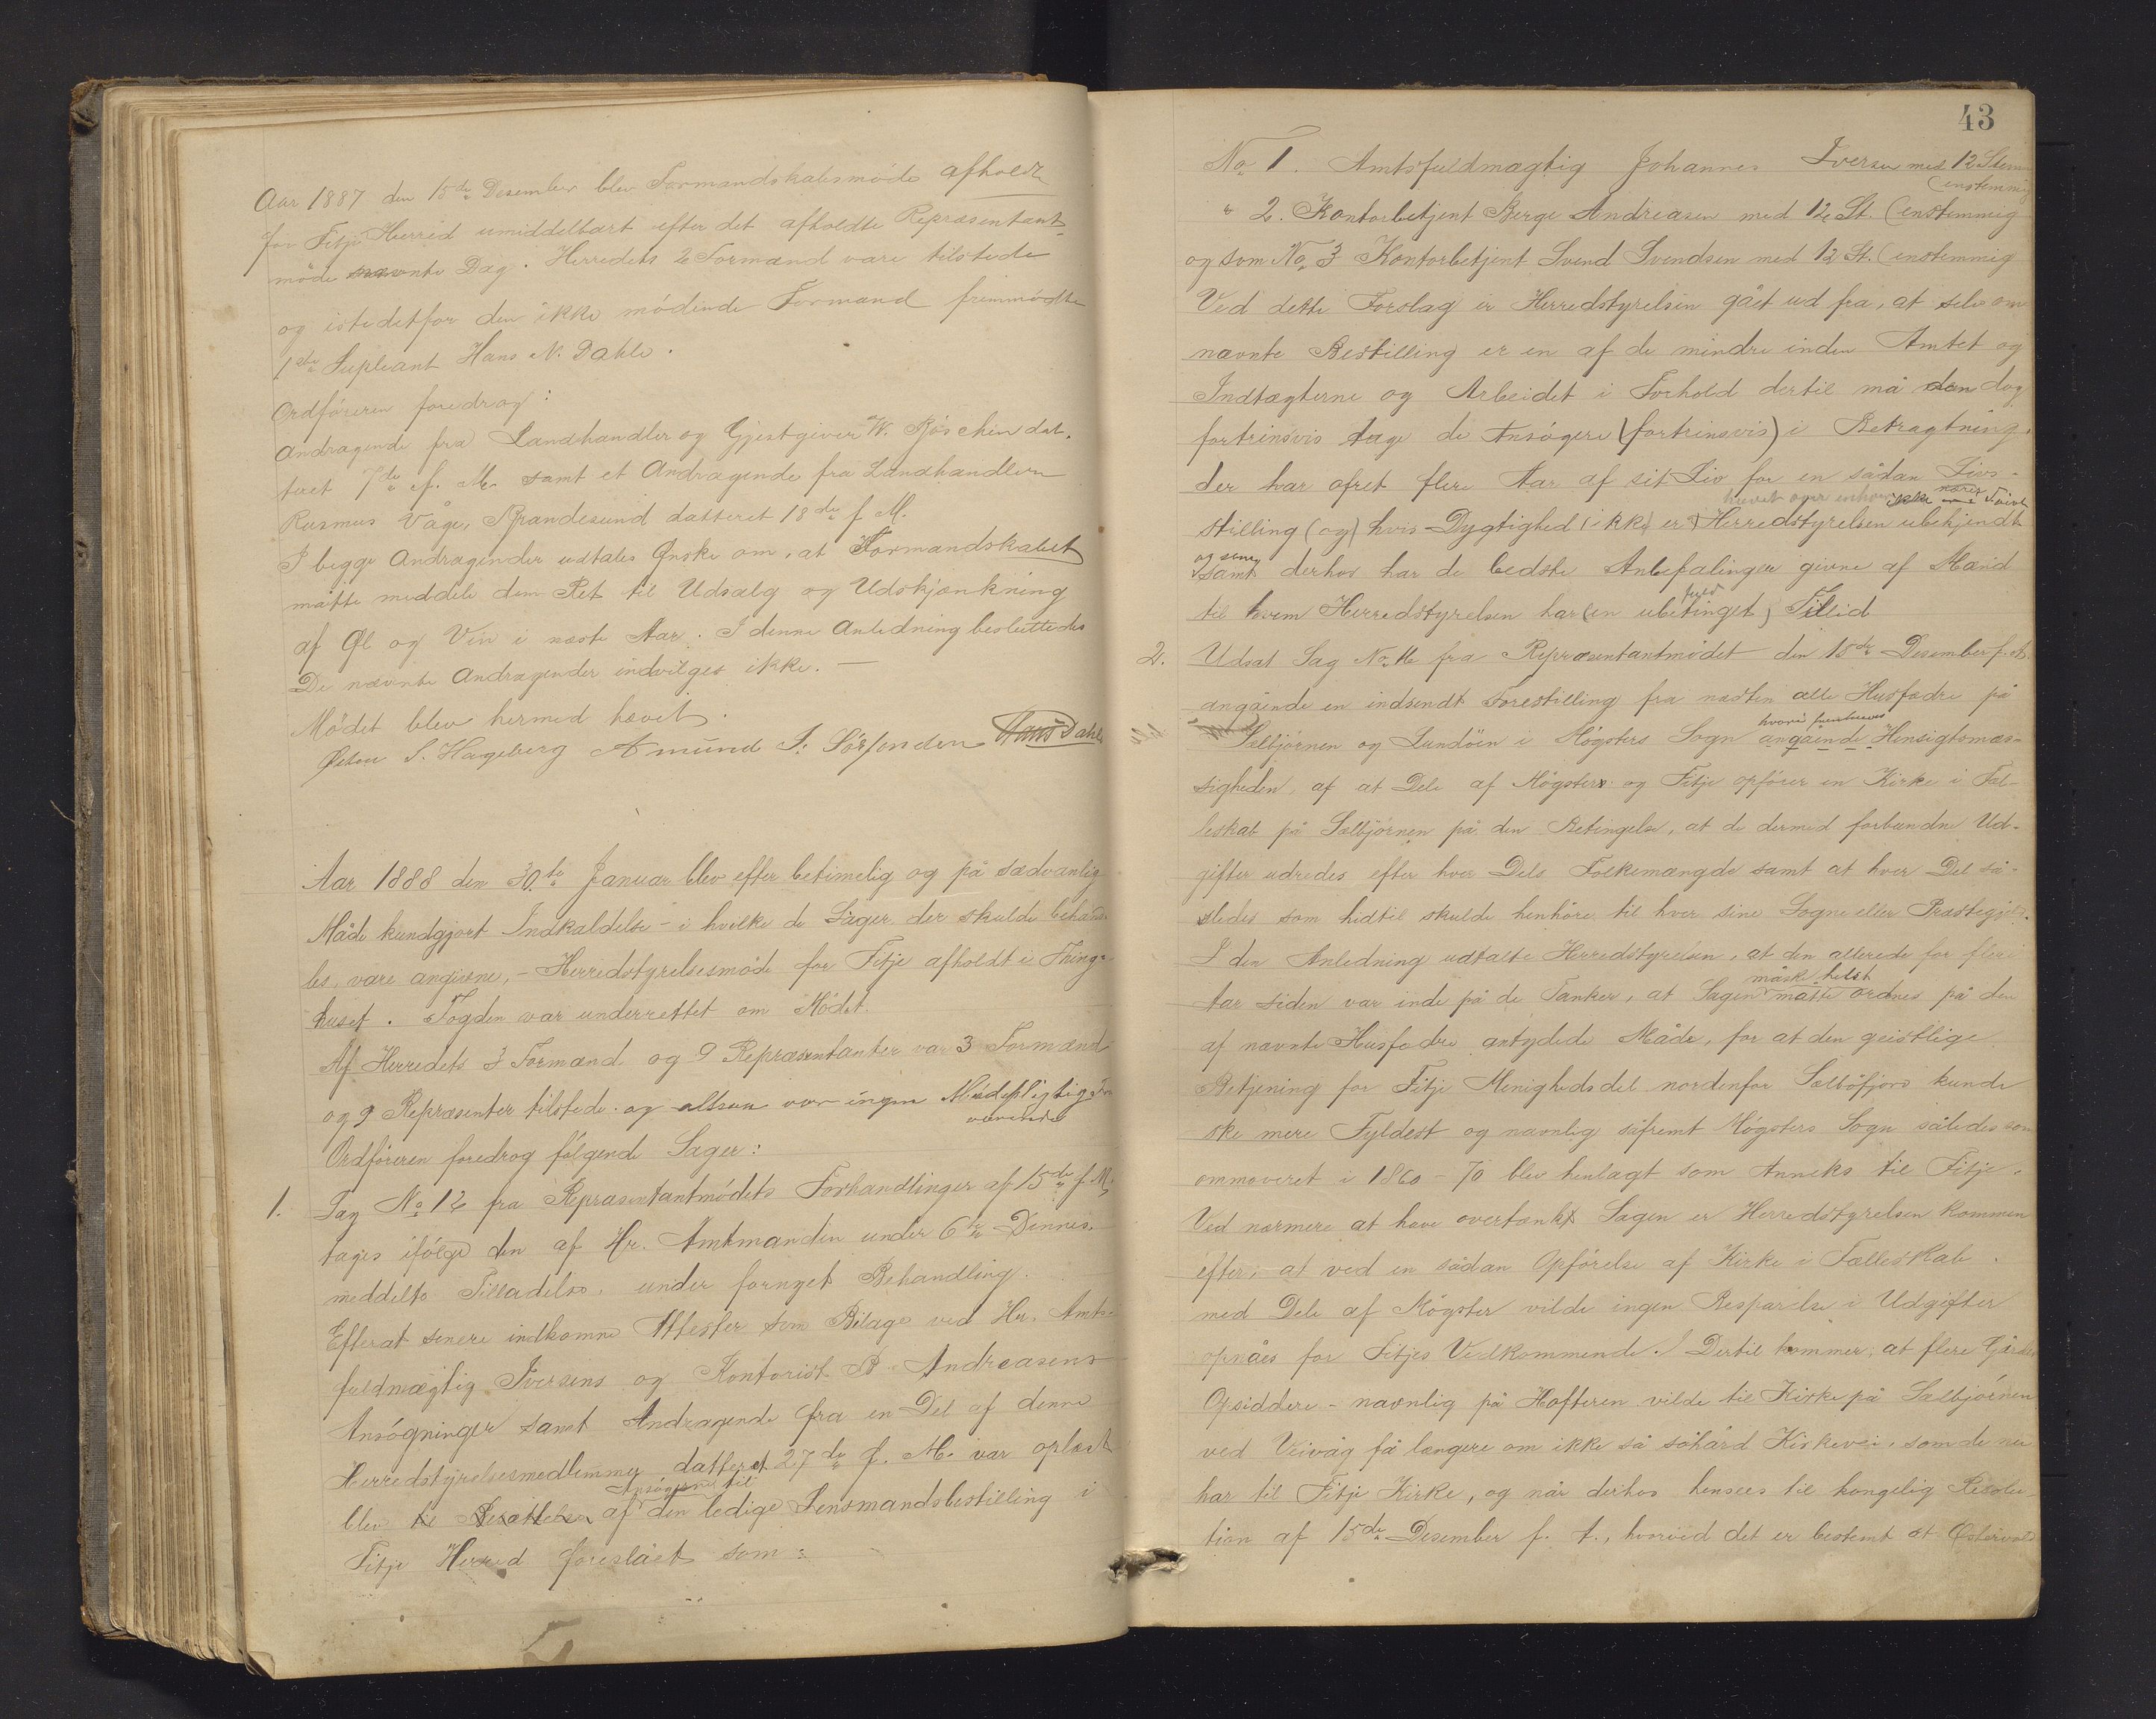 Aar 1887 den 15de Desember blev Formandskabsmøde afholdt
for Fitje Herred umiddelbart efter det afholdte Repræsentant-
møde nævnte Dag. Herredets 2 Formænd vare tilstede
og istedetfor den ikke mödende Formand fremmødte
1ste Supleant Hans N. Dahle.
Ordføreren foredrog:
Andragende fra Landhandler og Gjestgiver W. Røschen dat-
teret 7de f. M. samt et Andragende fra Landhandleren
Rasmus Våge, Brandesund datteret 18de f. M.
I begge Andragender udtales Ønske om, at Formandskabet
måtte meddele dem Ret til Udsalg og Udskjænkning
af Øl og Vin i næste Aar. I denne Anledning besluttedes
De nævnte Andragender indvilges ikke. —
Mødet blev hermed hævet.
Østen S. Hageberg Amund S. Sörfonden Hans Dahle
Aar 1888 den 30te Januar blev efter betimelig og på sædvanlig
Måde kundgjort Indkaldelse - i hvilke de Sager der skulde behand-
les, vare angivne, - Herredstyrelsesmøde for Fitje afholdt i Thing-
huset. Fogden var underrettet om Mödet.
Af Herredets 3 Formænd og 9 Repræsentanter var 3 Formænd
og 9 Repræsenter tilstede og altsaa var ingen Mödepligtig Fra
værende
Ordføreren foredrog følgende Sager:
1. Sag No 12 fra Repræsentantmödets Forhandlinger af 15de f. M.
tages ifölge den af Hr. Amtmanden under 6te Dennes
meddelte Tilladelse, under fornyet Behandling.
Efterat senere indkomne Attester som Bilage ved Hr. Amts-
fuldmægtig Iversens og Kontorist B. Andreasens
Ansögninger samt Andragende fra en Del af denne
Herredstyrelsesmedlemmer datteret 27de f. M. var oplæst
Ansøgerne til
blev til af den ledige Lensmandsbestilling i
Fitje Herred foreslåët som:
43
No 1. Amtsfuldmægtig Johannes Iversen med 12 Stem
(enstemmig
" 2. Kontorbetjent Berge Andreasen med 12 St. (enstemmig
og som No 3 Kontorbetjent Svend Svendsen med 12 St. (enstemmig
Ved dette Forslag er Herredstyrelsen gået ud fra, at selv om
nævnte Bestilling er en af de mindre inden Amtet og
Indtægterne og Arbeidet i Forhold dertil må den dog
fortrinsvis tage de Ansögere (fortrinsvis) i Betragtning,
der har ofret flere Aar af sit Liv for en sådan Livs-
hævet over enhver
stilling (og) hvis Dygtighed (ikke) er Herredstyrelsen ubekjendt
og som
samt derhos har de bedste Anbefalinger givne af Mænd
fuld
til hvem Herredstyrelsen har (en ubetinget) Tillid
2. Udsat Sag No 16 fra Repræsentantmödet den 15de Desember f. A.
angående en indsendt Forestilling fra næsten alle Husfædre på
hvori fremhæves
Selbjörnen og Sandöen i Møgsters Sogn angående Hensigtsmæs-
sigheden af at Dele af Møgster og Fitje opförer en Kirke i Fæl-
leskab på Sælbjörnen på den Betingelse, at de dermed forbundne Ud-
gifter udredes efter hver Dels Folkemængde samt at hver Del så-
sledes som hidtil skulde henhöre til hver sine Sogne eller Præstegjeld.
I den Anledning udtalte Herredstyrelsen, at den allerede for flere
måske helst
Aar siden var inde på de Tanker, at Sagen måtte ordnes på den
af nævnte Husfædre antydede Måde, for at den geistlige
Betjening for Fitje Menighedsdel nordenfor Selböfjord kunde
ske mere Fyldest og navnlig såfremt Møgsters Sogn således som
ommoveret i 1860-70 blev henlagt som Anneks til Fitje.
Ved nærmere at have overtænkt Sagen er Herredstyrelsen kommen
efter, at ved en sådan Opförelse af Kirke i Fælleskab
med Dele af Møgster vilde ingen Besparelse i Udgifter
opnåes for Fitjes Vedkommende. Dertil kommer, at flere Gårdes
Opsiddere - navnlig på Hufteren vilde til Kirke på Sælbjörnen
ved Veivåg få længere om ikke så såhård Kirkevei, som de nu
har til Fitje Kirke, og når derhos hensees til kongelig Resolu-
tion af 15de Desember f. A., hvorved det er bestemt at Østervold